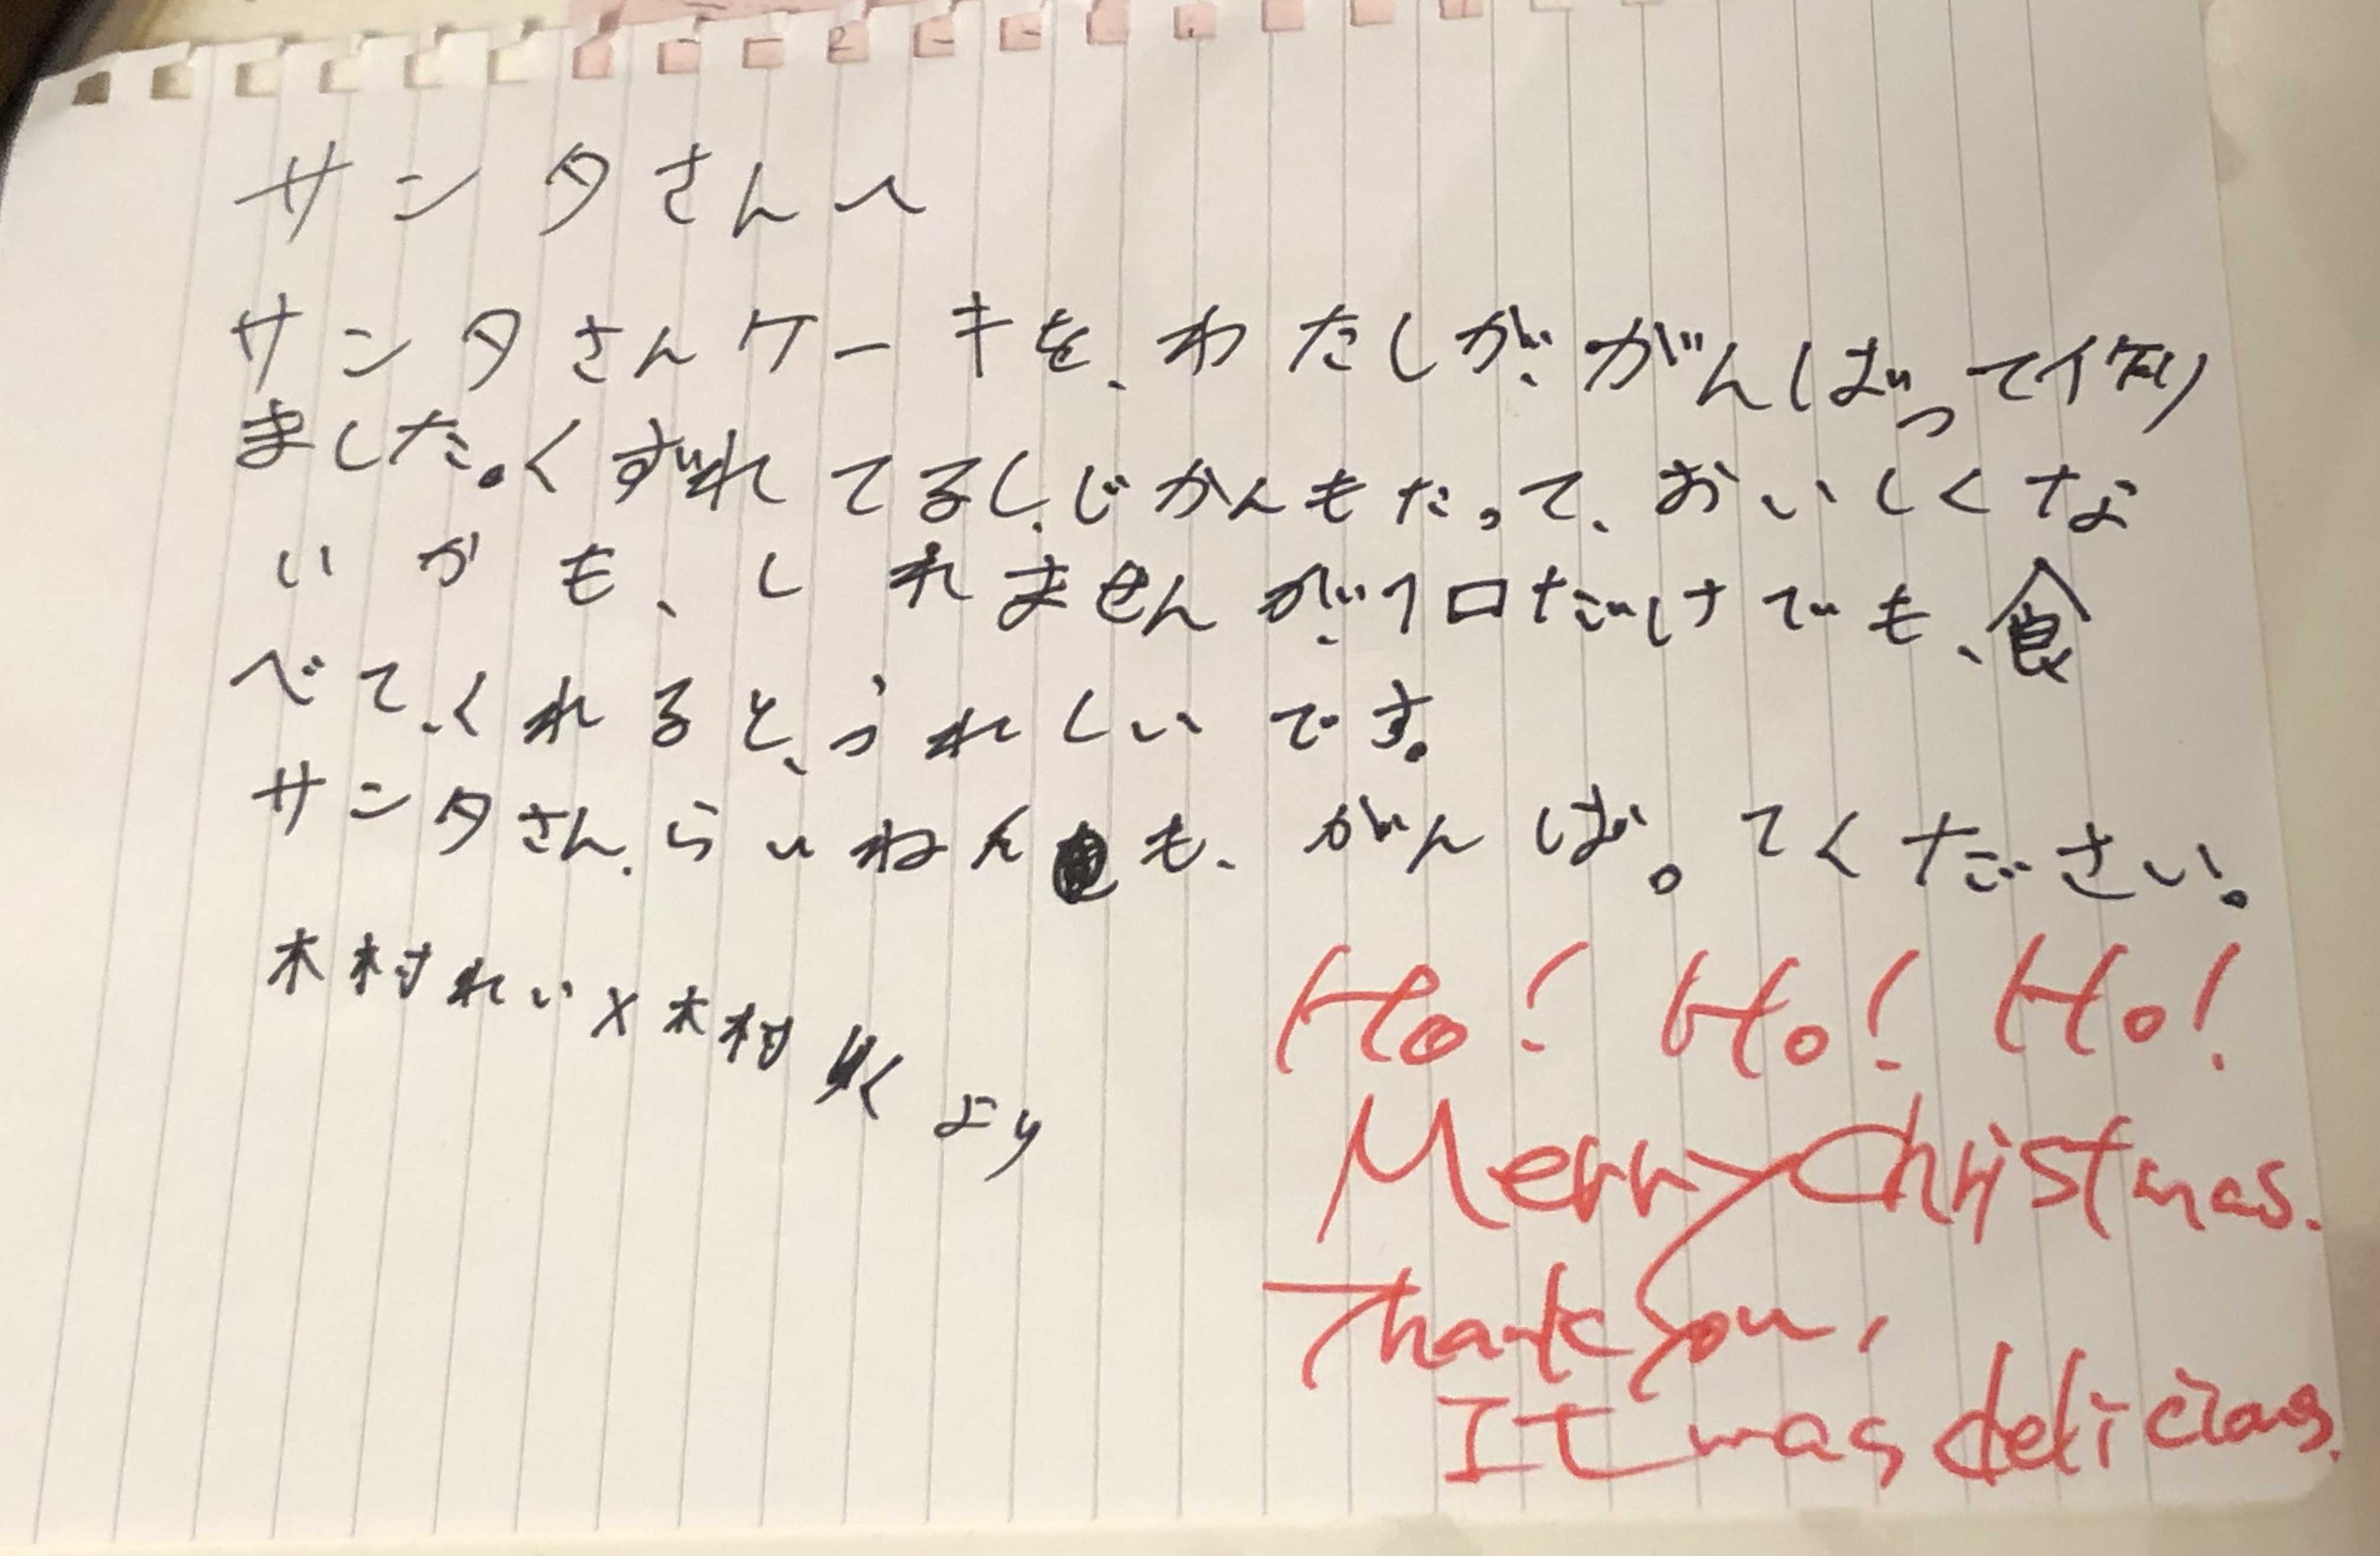 サンタさんへ
サンタさんケーキを、わたしが、がんばって作り
ました。くずれてるし、じかんもたって、おいしくな
いかも、しれませんが、1口だけでも、食
べて、くれると、うれしいです。
サンタさん、らいねんも、がんば。てください。
木村れい×木村 より
Ho! Ho! Ho!
Merry Christmas.
Thank you,
It was delicious.